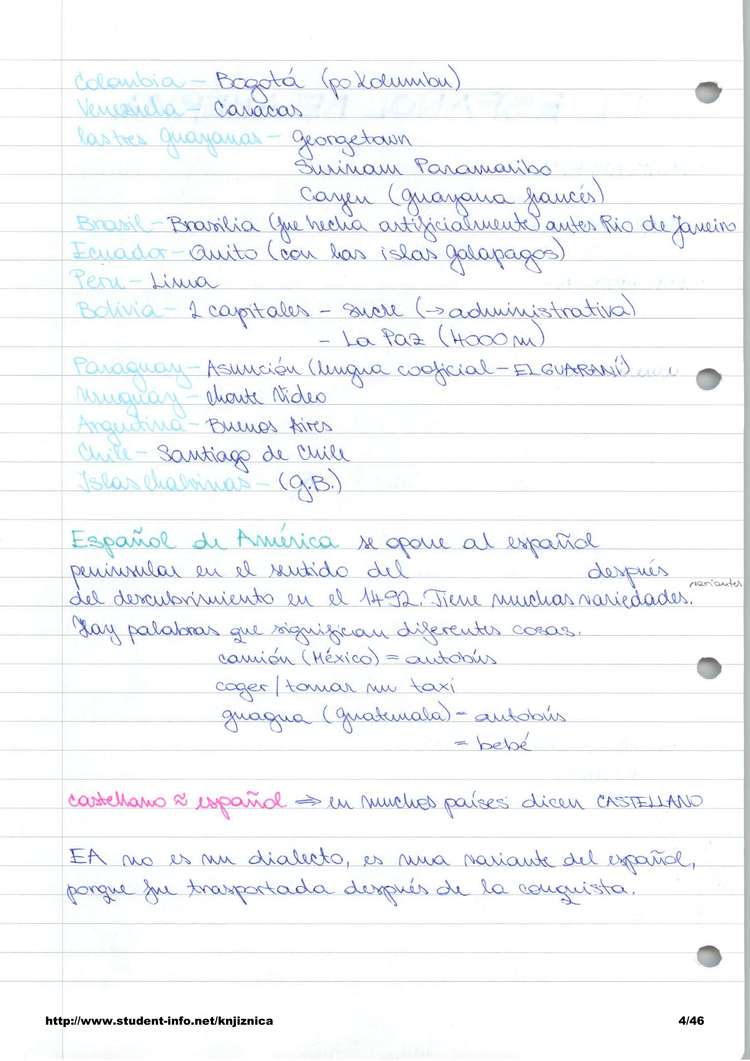 Colombia – Bogotá (po Kolumbu)
Venezuela – Caracas
las tres Guayanas – Georgetown
Surinam Paramaribo
Cayen (Guayana francés)
Brasil – Brasilia (fue hecha artificialmente) antes Rio de Janeiro
Ecuador – Quito (con las islas Galapagos)
Peru – Lima
Bolivia – 2 capitales – Sucre (→ administrativa)
– La Paz (4000 m)
Paraguay – Asunción (lengua cooficial – EL GUARANÍ)
Uruguay – Monte Video
Argentina – Buenos Aires
Chile – Santiago de Chile
Islas Malvinas – (G.B.)
Español de América se opone al español
peninsular en el sentido del después
variantes
del descubrimiento en el 1492. Tiene muchas variedades.
Hay palabras que significan diferentes cosas.
camión (México) = autobús
coger / tomar un taxi
guagua (Guatemala) = autobús
= bebé
castellano ≈ español ⇒ en muchos países dicen CASTELLANO
EA no es un dialecto, es una variante del español,
porque fue trasportada después de la conquista.
http://www.student-info.net/knjiznica
4/46